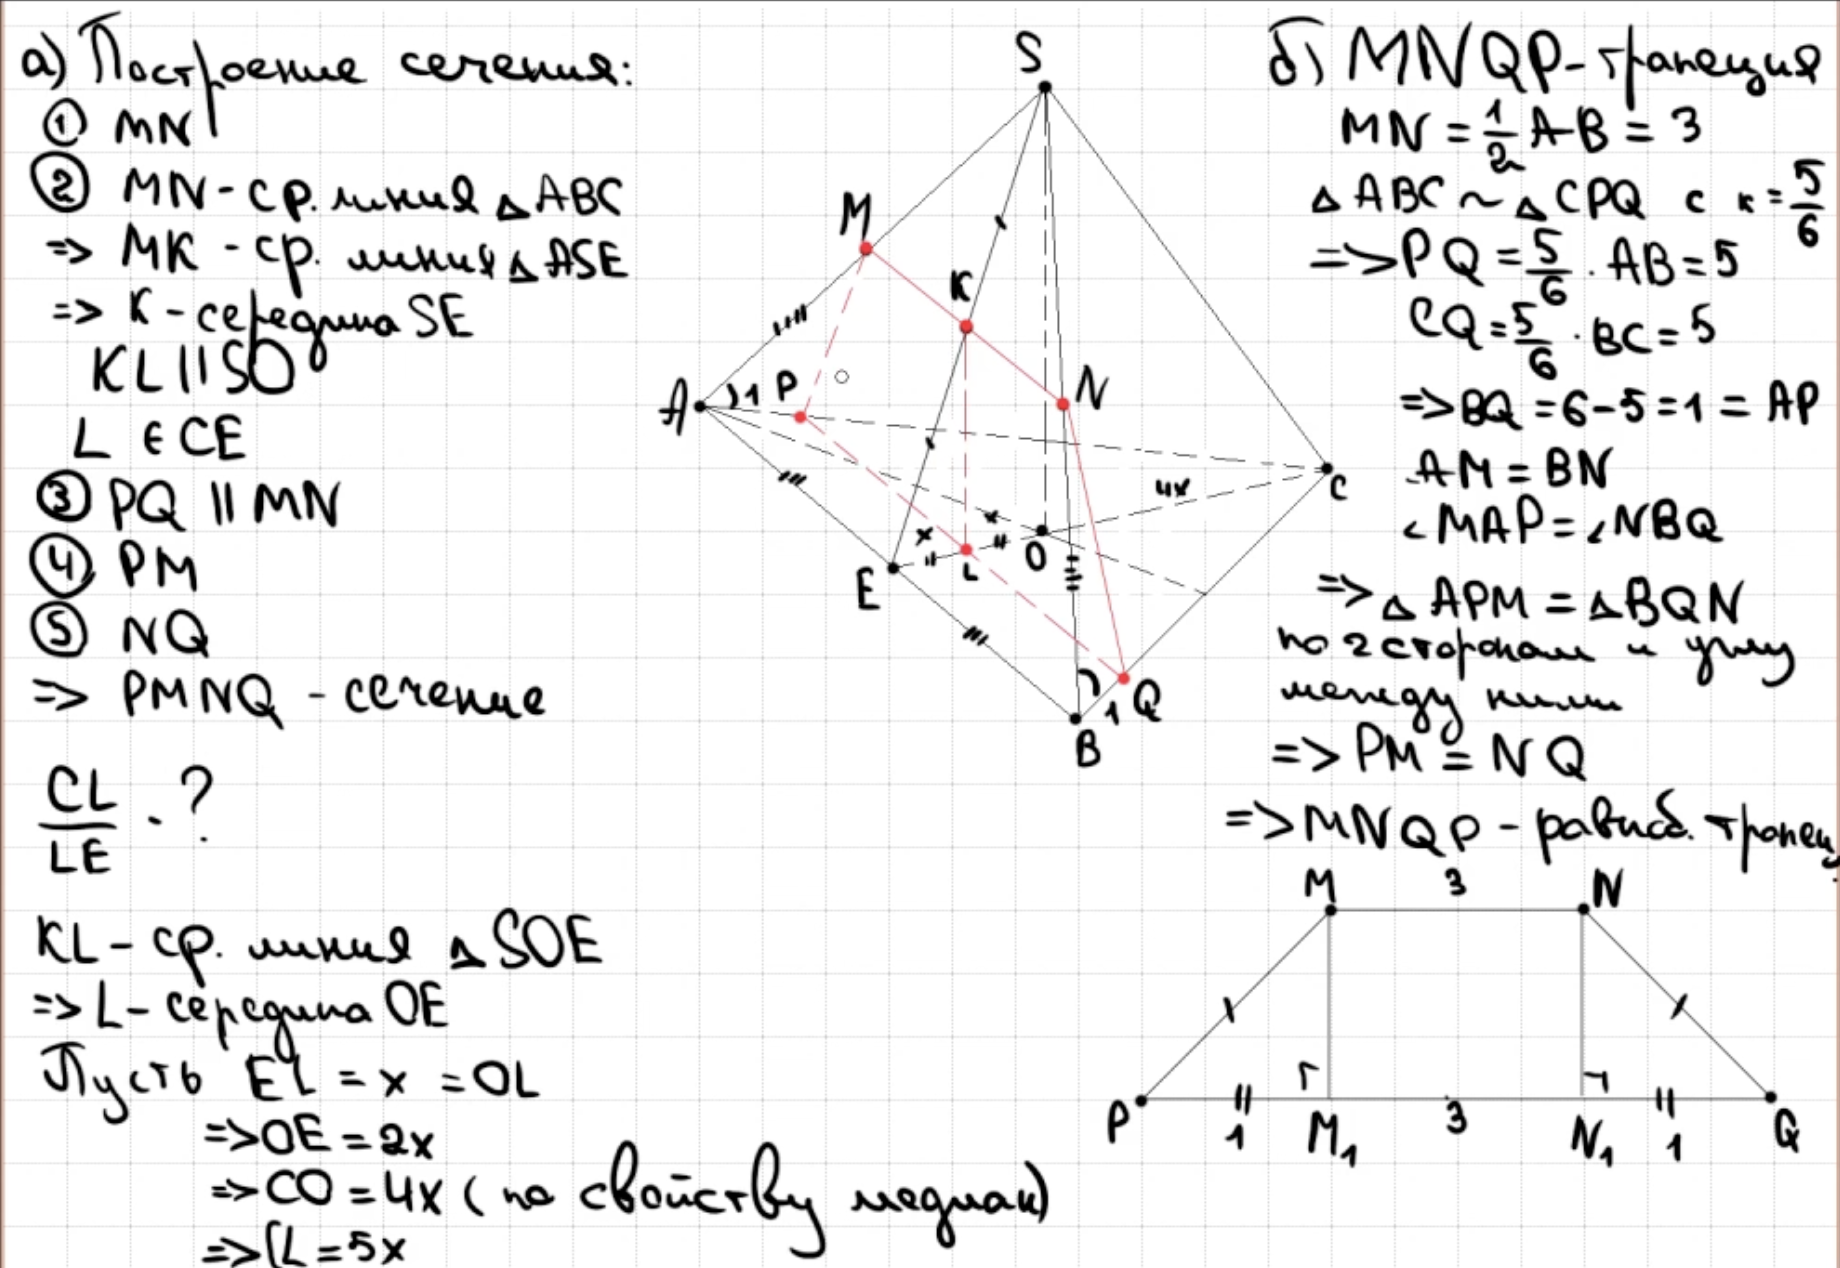 а) Построение сечения:
① MN
② MN - ср. линия △ ABC
=> MK - ср. линия △ ASE
=> K - середина SE
KL || SO
L ∈ CE
③ PQ || MN
④ PM
⑤ NQ
=> PMNQ - сечение
CL/LE - ?
KL - ср. линия △ SOE
=> L - середина OE
Пусть EL = x = OL
=> OE = 2x
=> CO = 4x (по свойству медиан)
=> CL = 5x
S
M
K
A
1
P
N
4x
C
x
x
E
L
O
1
Q
B
б) MNQP - трапеция
MN = 1/2 AB = 3
△ ABC ~ △ CPQ с к = 5/6
=> PQ = 5/6 · AB = 5
CQ = 5/6 · BC = 5
=> BQ = 6 - 5 = 1 = AP
AM = BN
∠MAP = ∠NBQ
=> △ APM = △ BQN
по 2 сторонам и углу
между ними
=> PM = NQ
=> MNQP - равноб. трапец.
M 3 N
P 1 M₁ 3 N₁ 1 Q